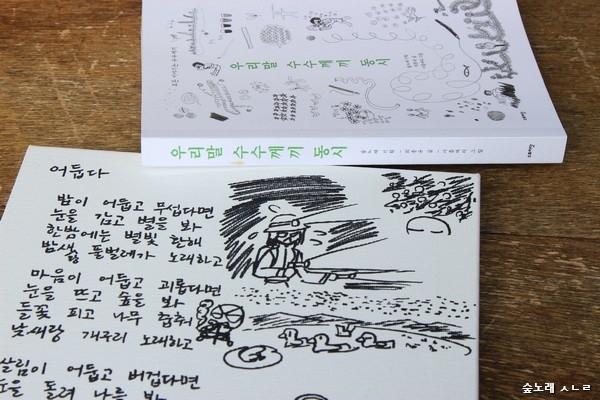 우리말 수수께끼 동시
우리말 수수께끼 동시
어둡다
밤이 어둡고 무섭다면
눈을 감고 별을 봐
한밤에는 별빛 환해
밤새 풀벌레가 노래하고
마음이 어둡고 괴롭다면
눈을 뜨고 숲을 봐
들꽃 피고 나무 춤춰
낮새랑 개구리 노래하고
살림이 어둡고 버겁다면
돌려 나를 봐
숲노래 ㅅㄴㄹ